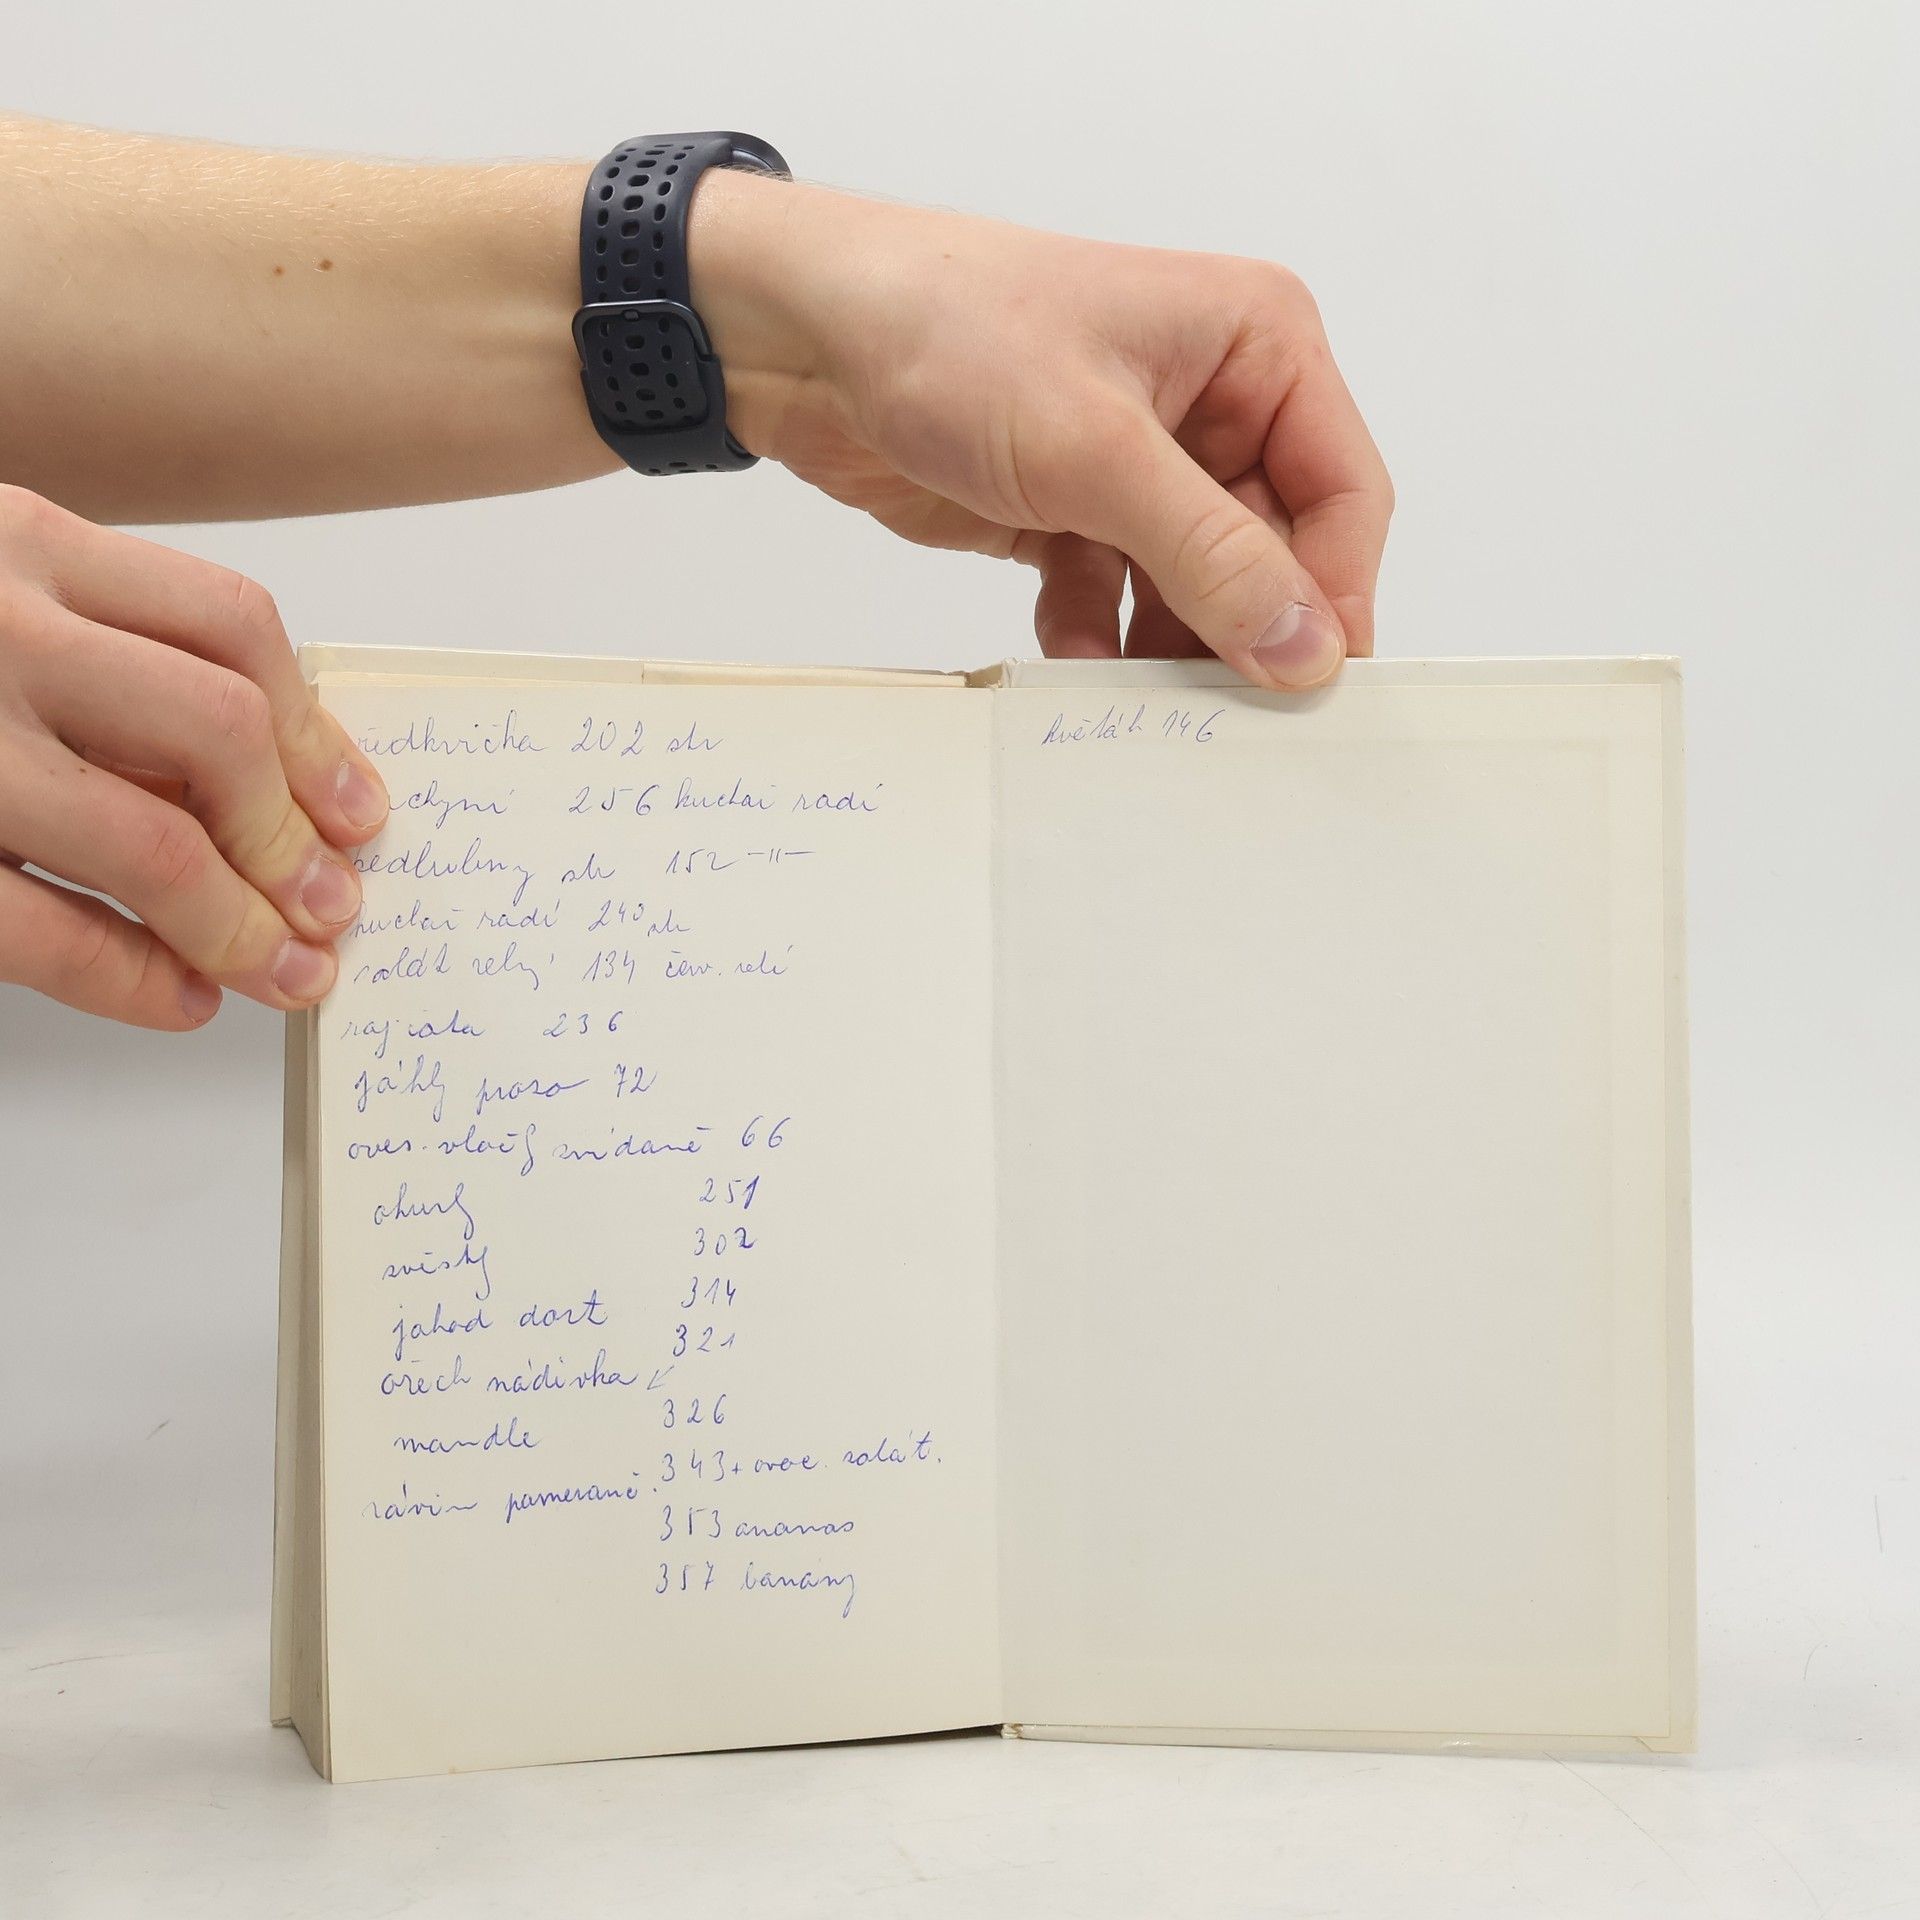 ředkvička 202 str
chyní 256 kuchař radí
kedlubny str 152 —"—
kuchař radí 240 str
salát zelný 134 červ. zelí
rajčata 236
jáhly proso 72
oves. vločky snídaně 66
okurky 251
švestky 302
jahod dort 314
321
ořech nádivka ↙
mandle 326
343 + ovoc. salát.
závin pomeranč.
353 ananas
357 banány
květák 146